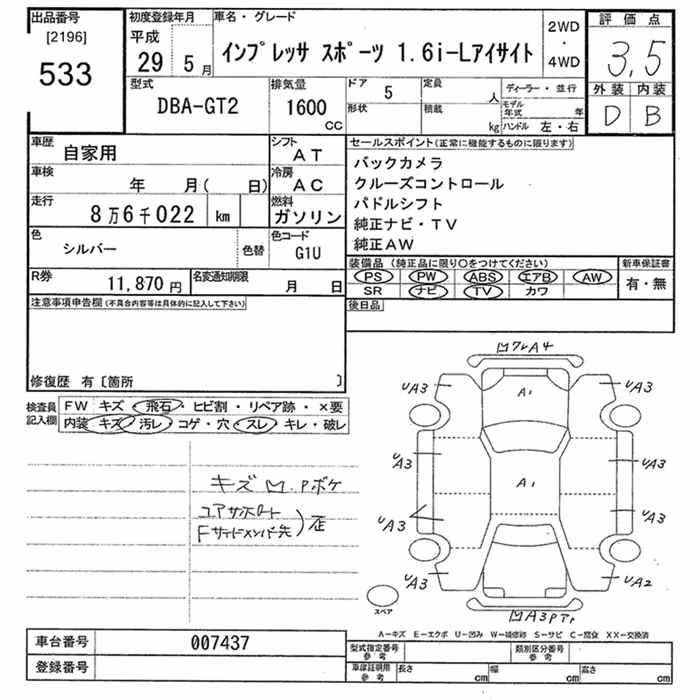 出品番号 初度登録年月 車名・グレード 2WD 評価点
[2196] 平成 ・
533 29年 5月 インプレッサ スポーツ 1.6i-Lアイサイト 4WD 3,5
型式 排気量 ドア 5 定員 人 ディーラー・並行 外装 内装
DBA-GT2 1600 CC 形状 積載 kg モデル年式 年 D B
ハンドル 左・右
車歴 自家用 シフト AT セールスポイント(正常に機能するものに限ります)
車検 年 月( 日) 冷房 AC バックカメラ
クルーズコントロール
走行 8万6千022 km 燃料 ガソリン パドルシフト
純正ナビ・TV
色 シルバー 色替 色コード G1U 純正AW
装備品 (純正品に限り○をつけてください) 新車保証書
R券 11,870円 名変通知期限 月 日 PS PW ABS エアB AW 有・無
SR ナビ TV カワ
注意事項申告欄(不具合内容等は具体的に記入して下さい) 後日品
修復歴 有〔箇所 〕
検査員記入欄 FW キズ・飛石・ヒビ割・リペア跡・×要
内装 キズ・汚レ・コゲ・穴・スレ・キレ・破レ
キズ凹.Pボケ
コアサポート
Fサイドメンバ先 歪
凹ワレA4
UA3 A1 UA3
UA3 UA3
A1
UA3 UA3
UA3 UA2
スペア 凹A3PTr
A-キズ E-エクボ U-凹み W-補修跡 S-サビ C-腐食 XX-交換済
車台番号 007437 型式指定番号 参考 類別区分番号 参考
登録番号 車庫証明用 参考 長さ cm 幅 cm 高さ cm